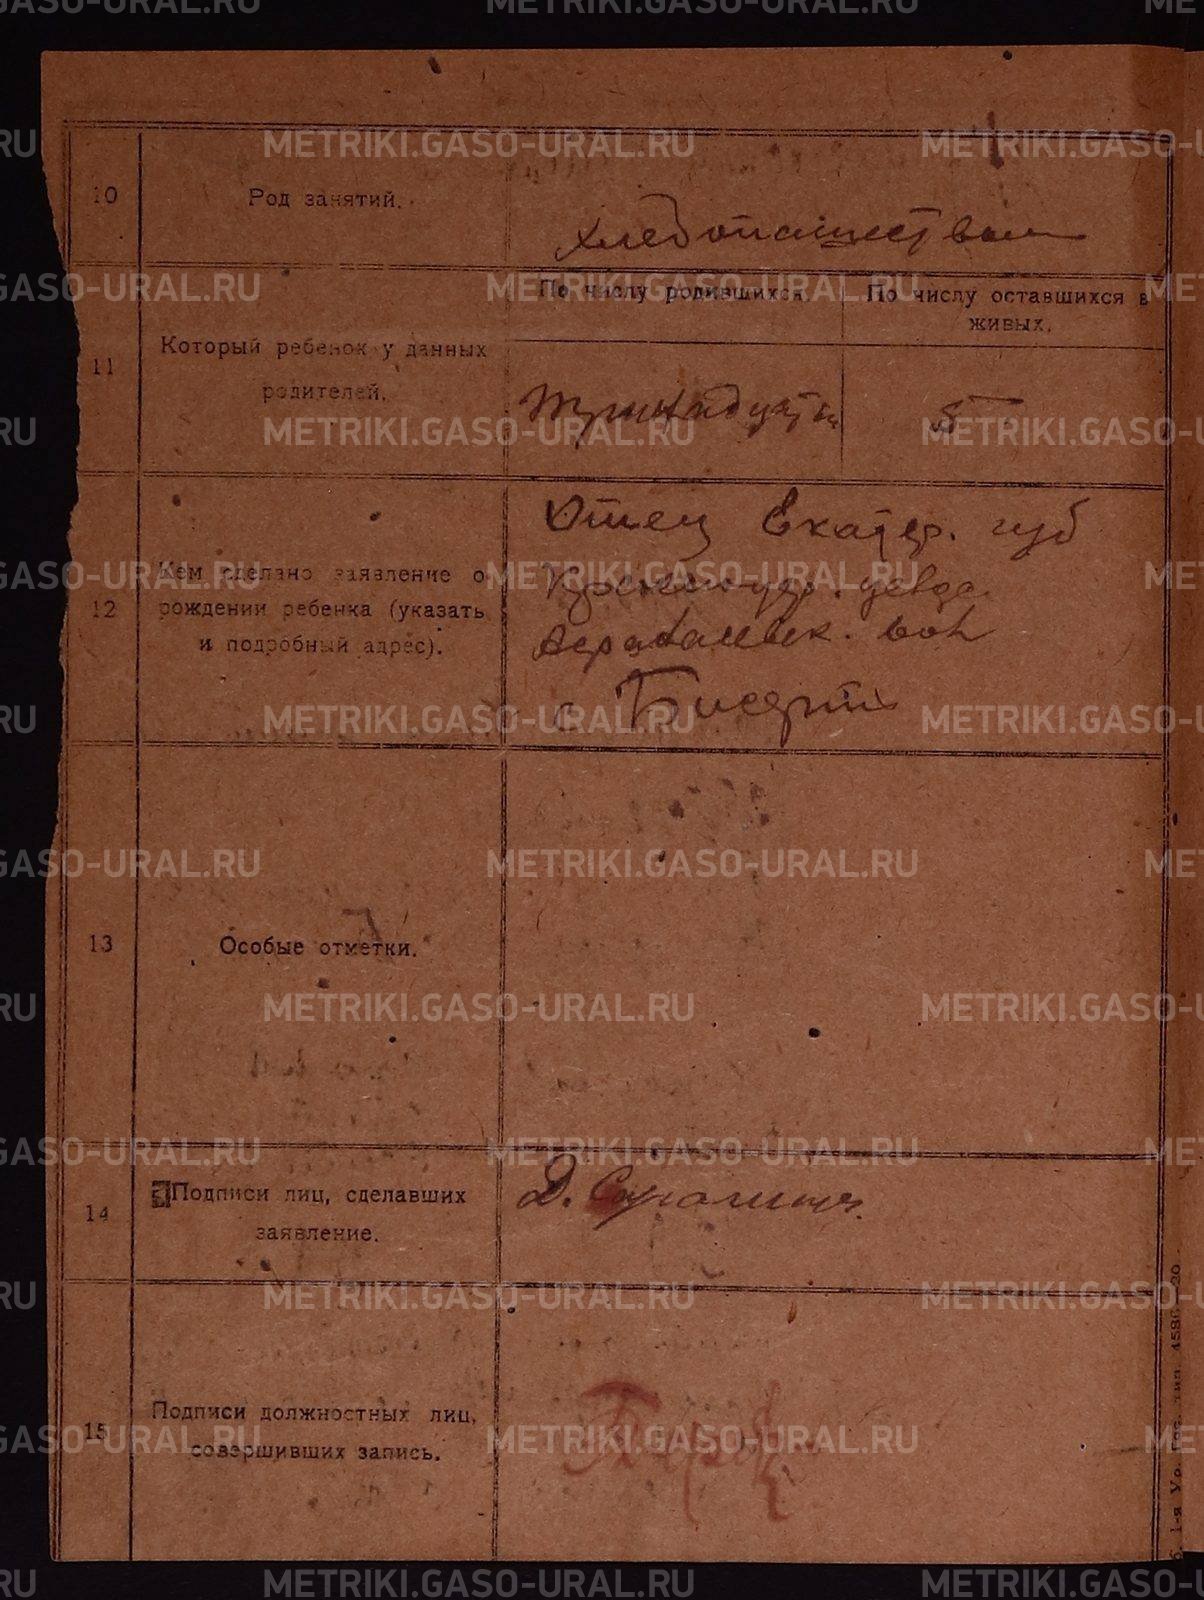 METRIKI.GASO-URAL.RU
10
Род занятий.
хлебопашеством
11
Который ребенок у данных
родителей.
По числу родившихся.
По числу оставшихся в
живых.
5
12
Кем сделано заявление о
рождении ребенка (указать
и подробный адрес).
Отец Екатер. губ
Красноуфр. уезда
вол
с Бисерти
13
Особые отметки.
14
Подписи лиц, сделавших
заявление.
Д.
15
Подписи должностных лиц,
совершивших запись.